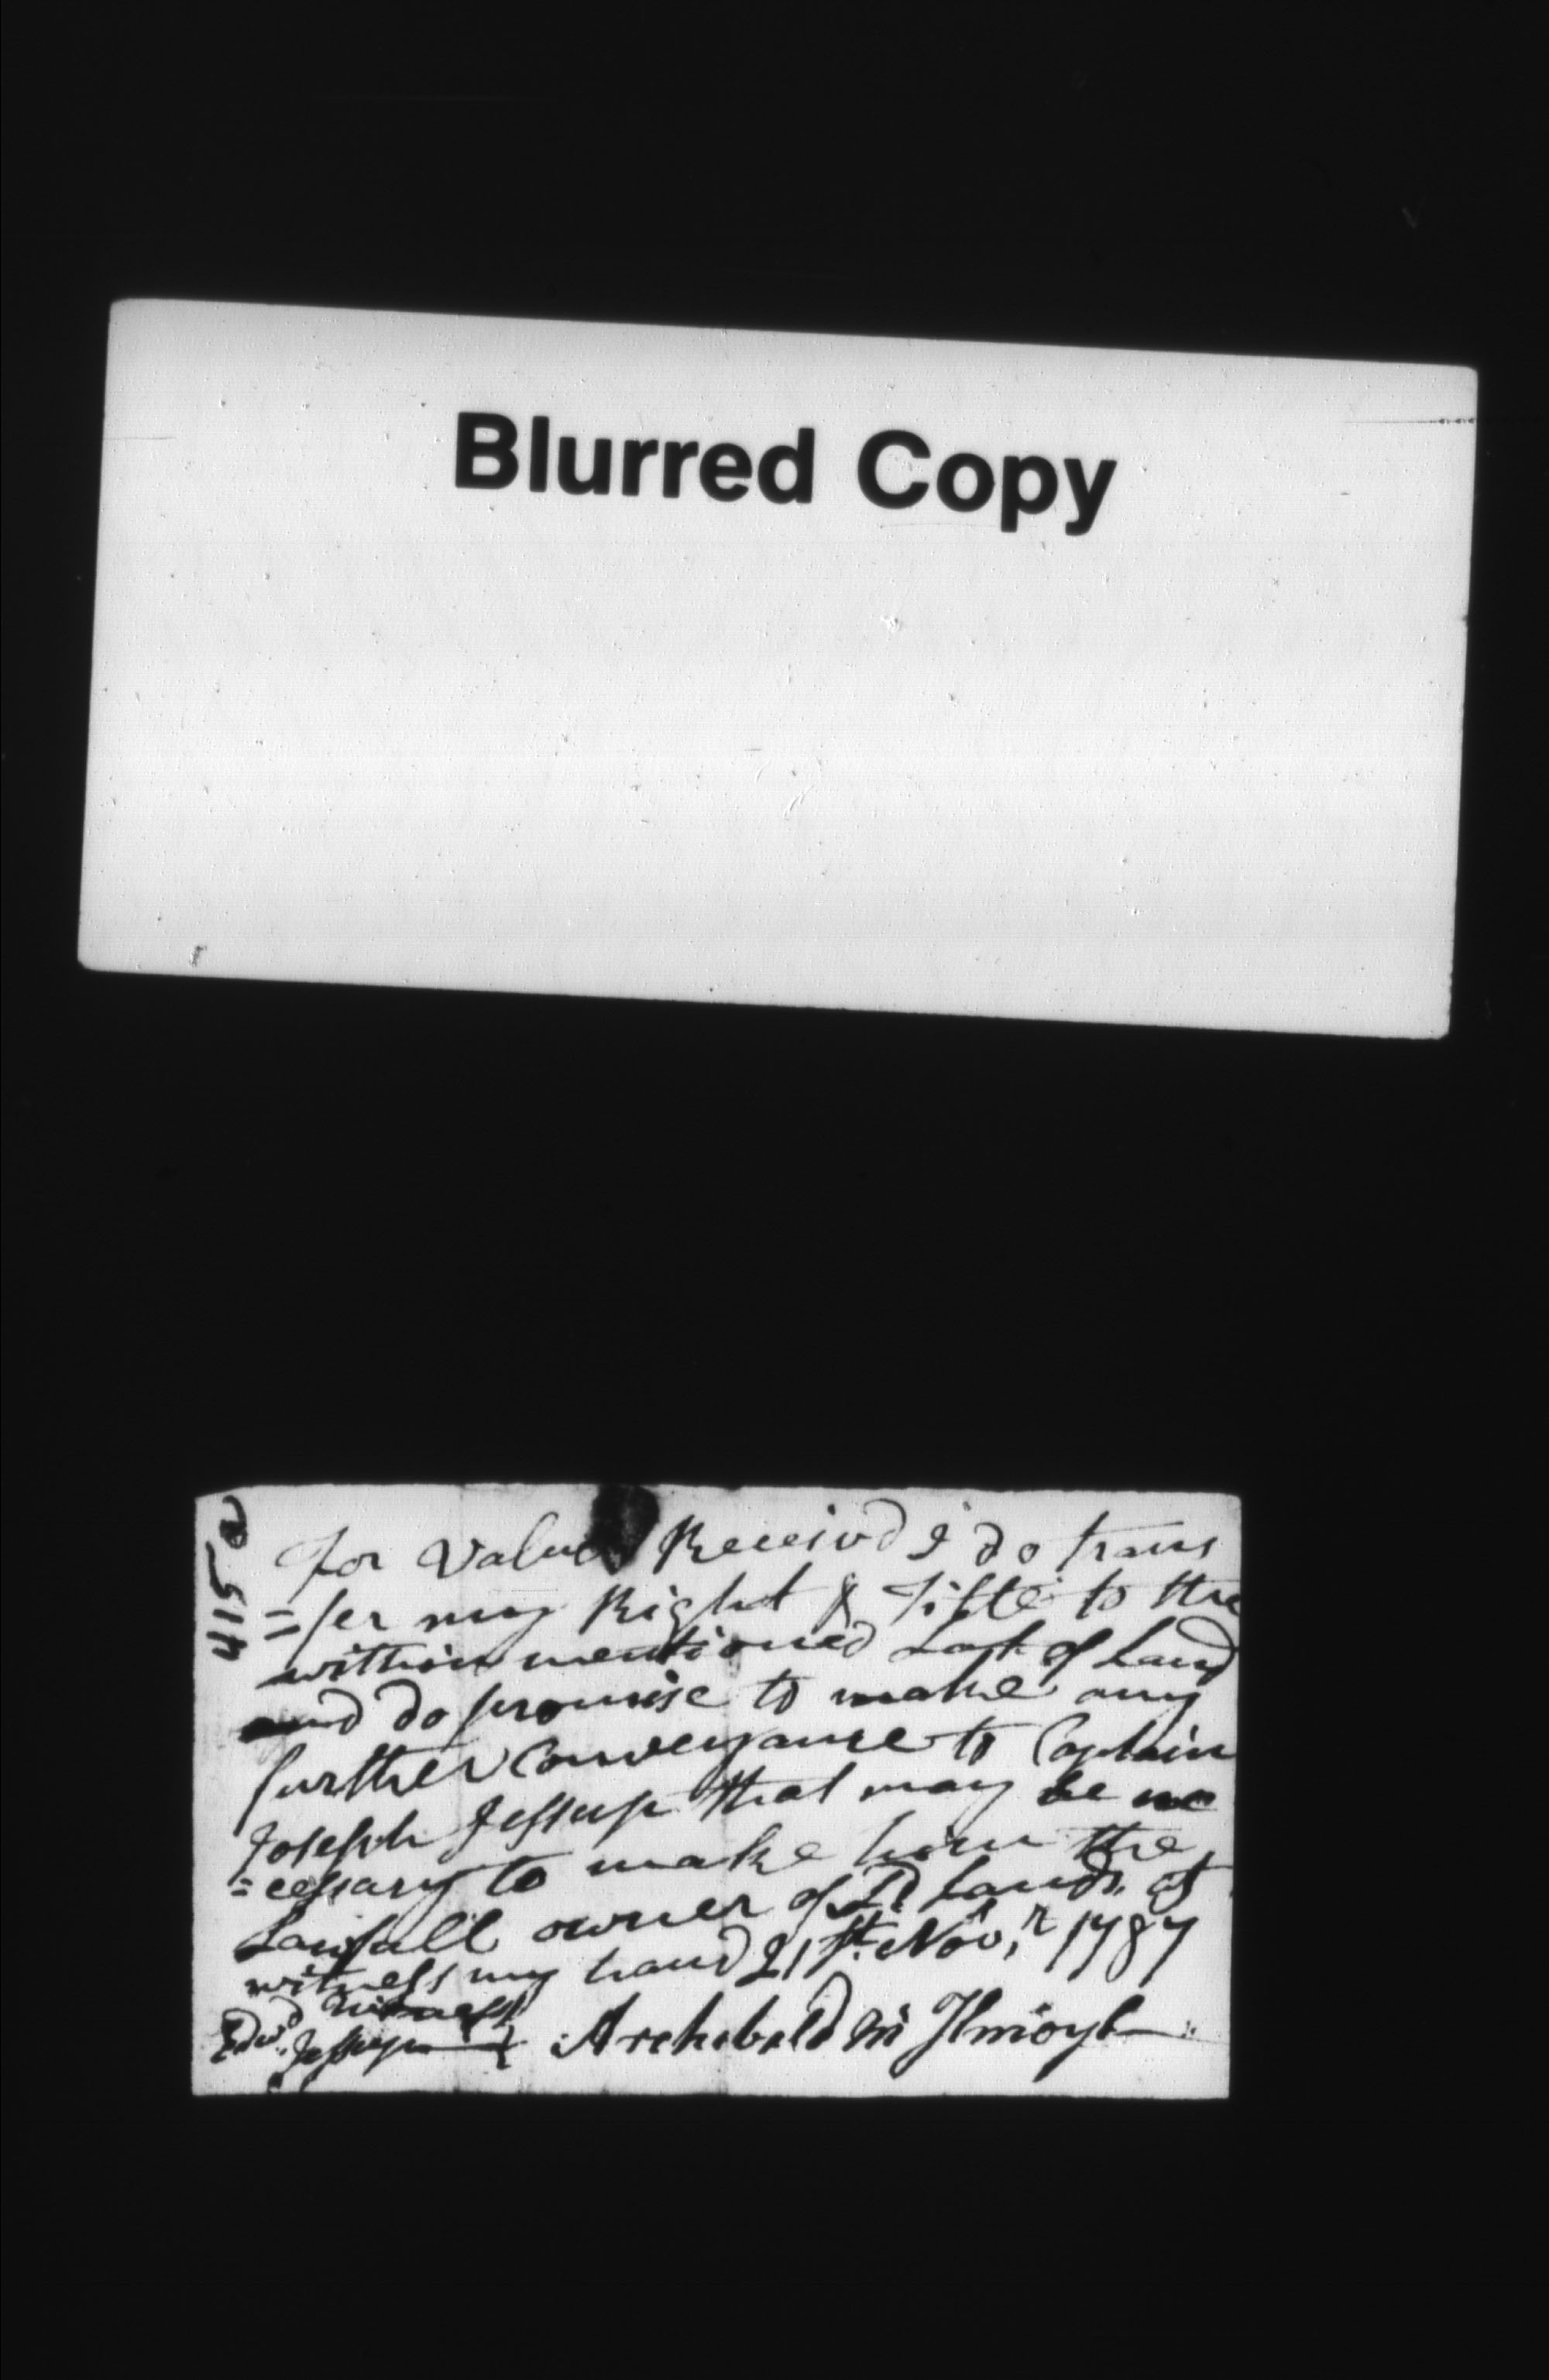 Blurred Copy
415 a
For Value Receivd I do trans
=fer my Right & Title to the
within mentioned Lott of Land
and do promise to make any
further Conveyance to Captain
Joseph Jessup that may be ne
=cessary to make him the
Lawfull owner of Sd Lands. as
witness my hand 21st. Novr. 1787
Witness
Edwd. Jessup Archibald